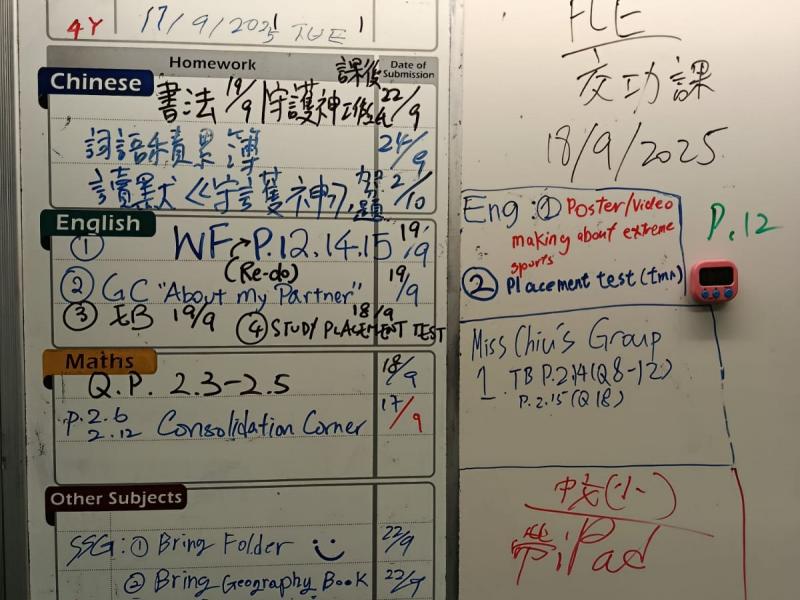 4Y 17/9/2025 TUE
Homework Date of Submission
Chinese
書法 19/9 守護神 課後 22/9
詞語積累簿 24/9
讀默《守護神》, 加 題 2/10
English
① WF → P.12.14.15 19/9
(Re-do)
② GC "About my Partner" 19/9
③ EB 19/9 ④ STUDY PLACEMENT TEST 18/9
Maths
Q.P. 2.3-2.5 18/9
P.2.6
2.12 Consolidation Corner 17/9
Other Subjects
SSG: ① Bring Folder 22/9
② Bring Geography Book 22/9
交功課
18/9/2025
Eng: ① Poster/video
making about extreme
sports
② Placement test (tmr)
P.12
Miss Chiu's Group
1 TB P.2.14 (Q8-12)
P.2.15 (Q18)
中文(小)
帶iPad